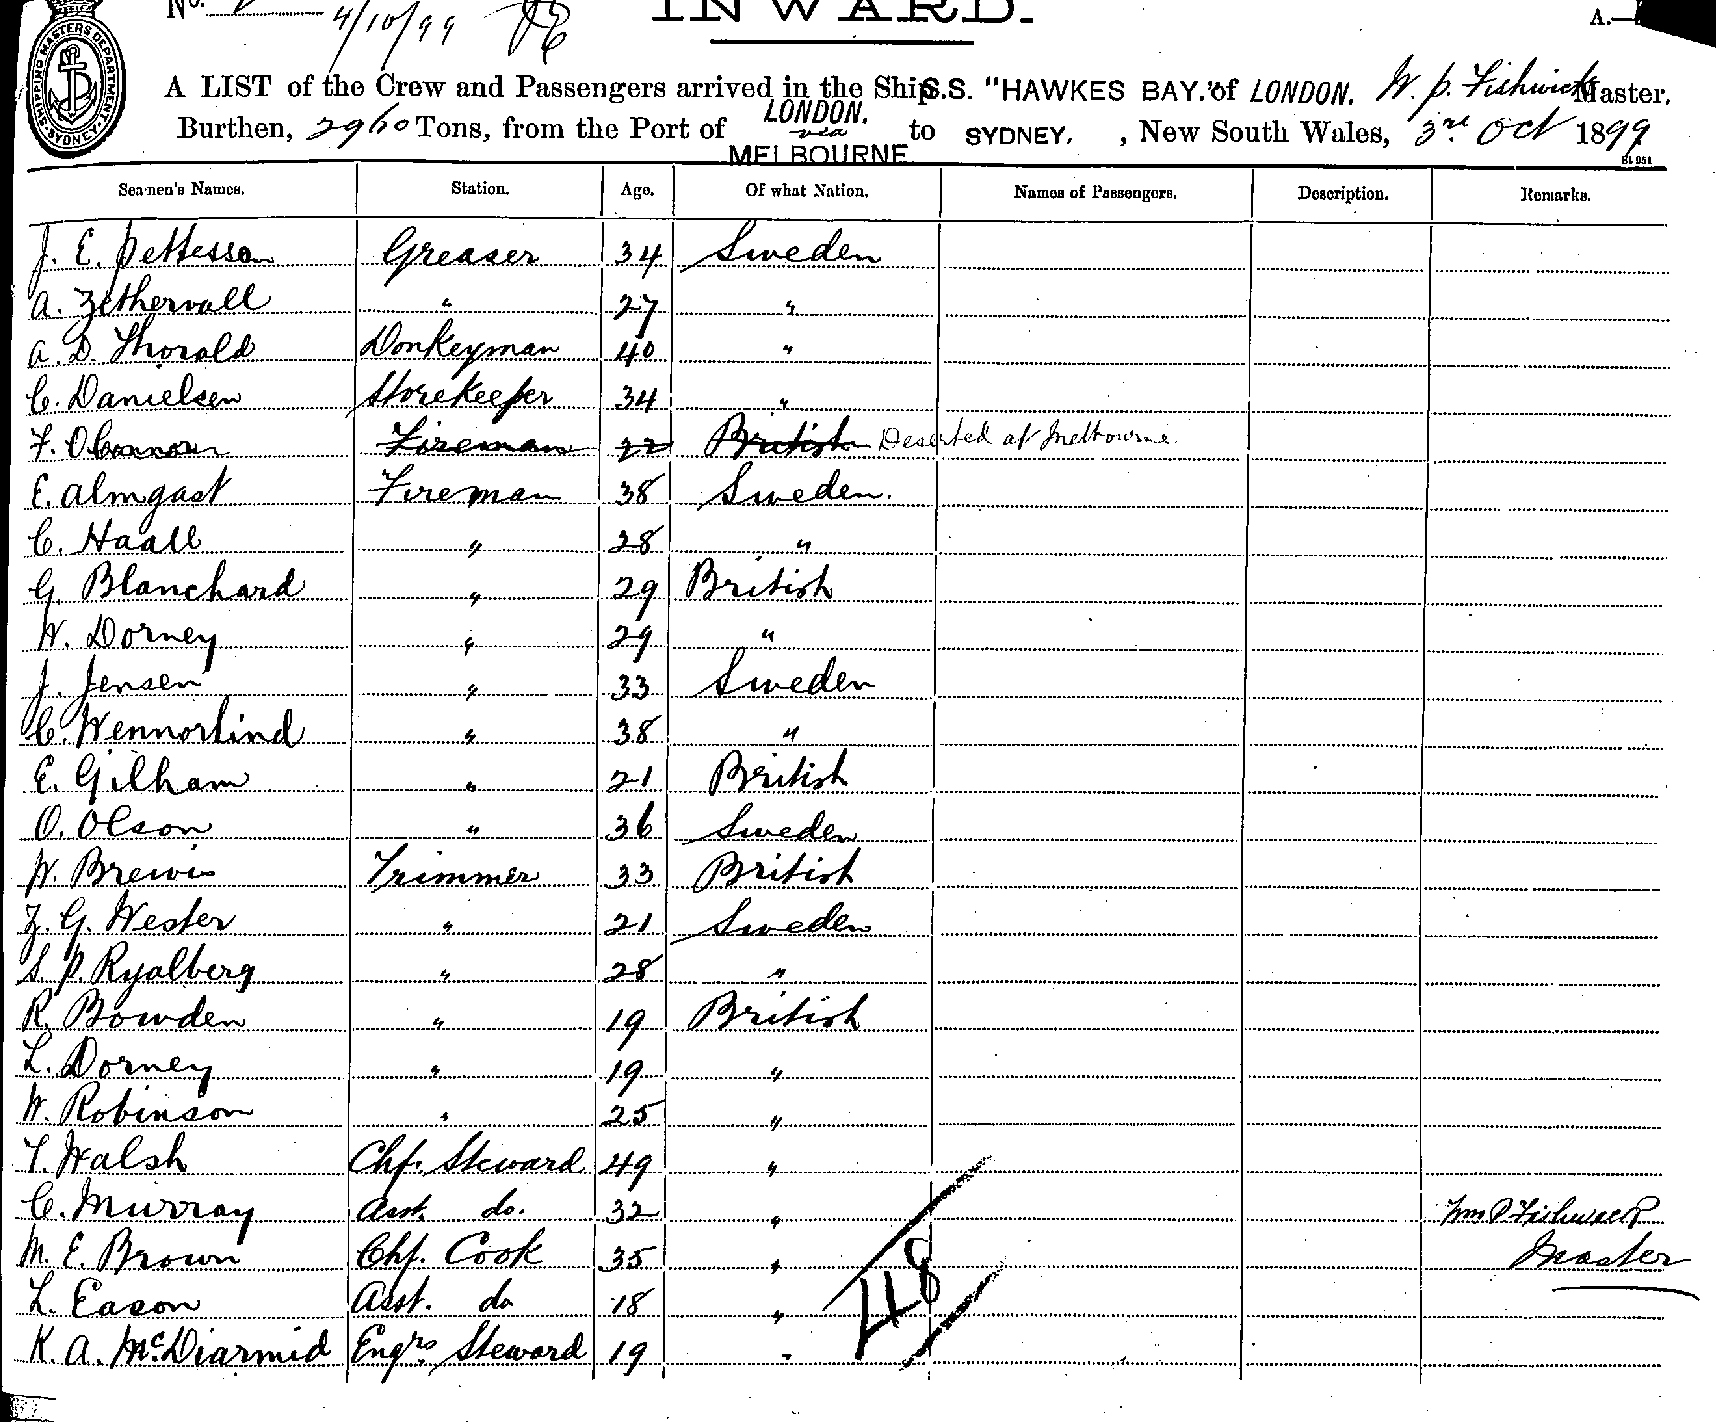 No.
4/10/99
INWARD.
A.—
SHIPPING MASTERS DEPARTMENT SYDNEY
A LIST of the Crew and Passengers arrived in the Ship S.S. "HAWKES BAY." of LONDON. W. P. Fishwick Master,
Burthen, 2960 Tons, from the Port of LONDON. via MELBOURNE to SYDNEY. , New South Wales, 3rd Oct 1899
Seamen's Names. Station. Age. Of what Nation. Names of Passengers. Description. Remarks.
J. E. Pettesson Greaser 34 Sweden
A. Zethervall " 27 "
A. D. Thorald Donkeyman 40 "
C. Danielsen Storekeeper 34 "
F. OConnor Fireman 22 British Deserted at Melbourne
E. Almgast Fireman 38 Sweden.
C. Haall " 28 "
G. Blanchard " 29 British
W. Dorney " 29 "
J. Jensen " 33 Sweden
C. Wennorlind " 38 "
E. Gilham " 21 British
O. Olson " 36 Sweden
W. Brewis Trimmer 33 British
Z. G. Wester " 21 Sweden
S. P. Ryalberg " 28 "
R. Bowden " 19 British
L. Dorney " 19 "
W. Robinson " 25 "
T. Walsh Chf. Steward 49 "
C. Murray Asst. do. 32 " Wm P Fishwick
M. E. Brown Chf. Cook 35 " Master
L. Eason Asst. do 18 "
48
K. A. McDiarmid Engrs Steward 19 "